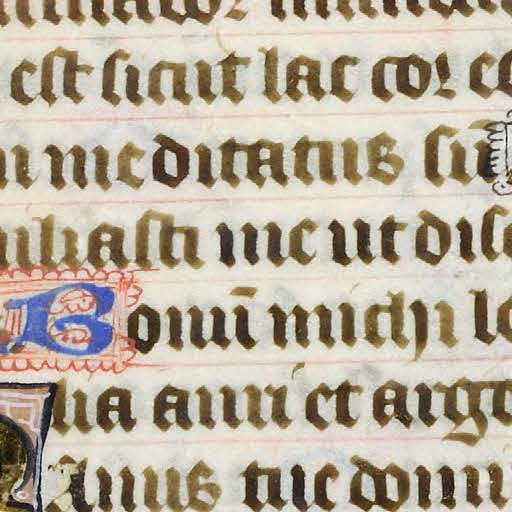 est sicut lac cor
meditatus su
iliasti me ut disc
Bonū michi le
lia auri et arge
Anus tue domin